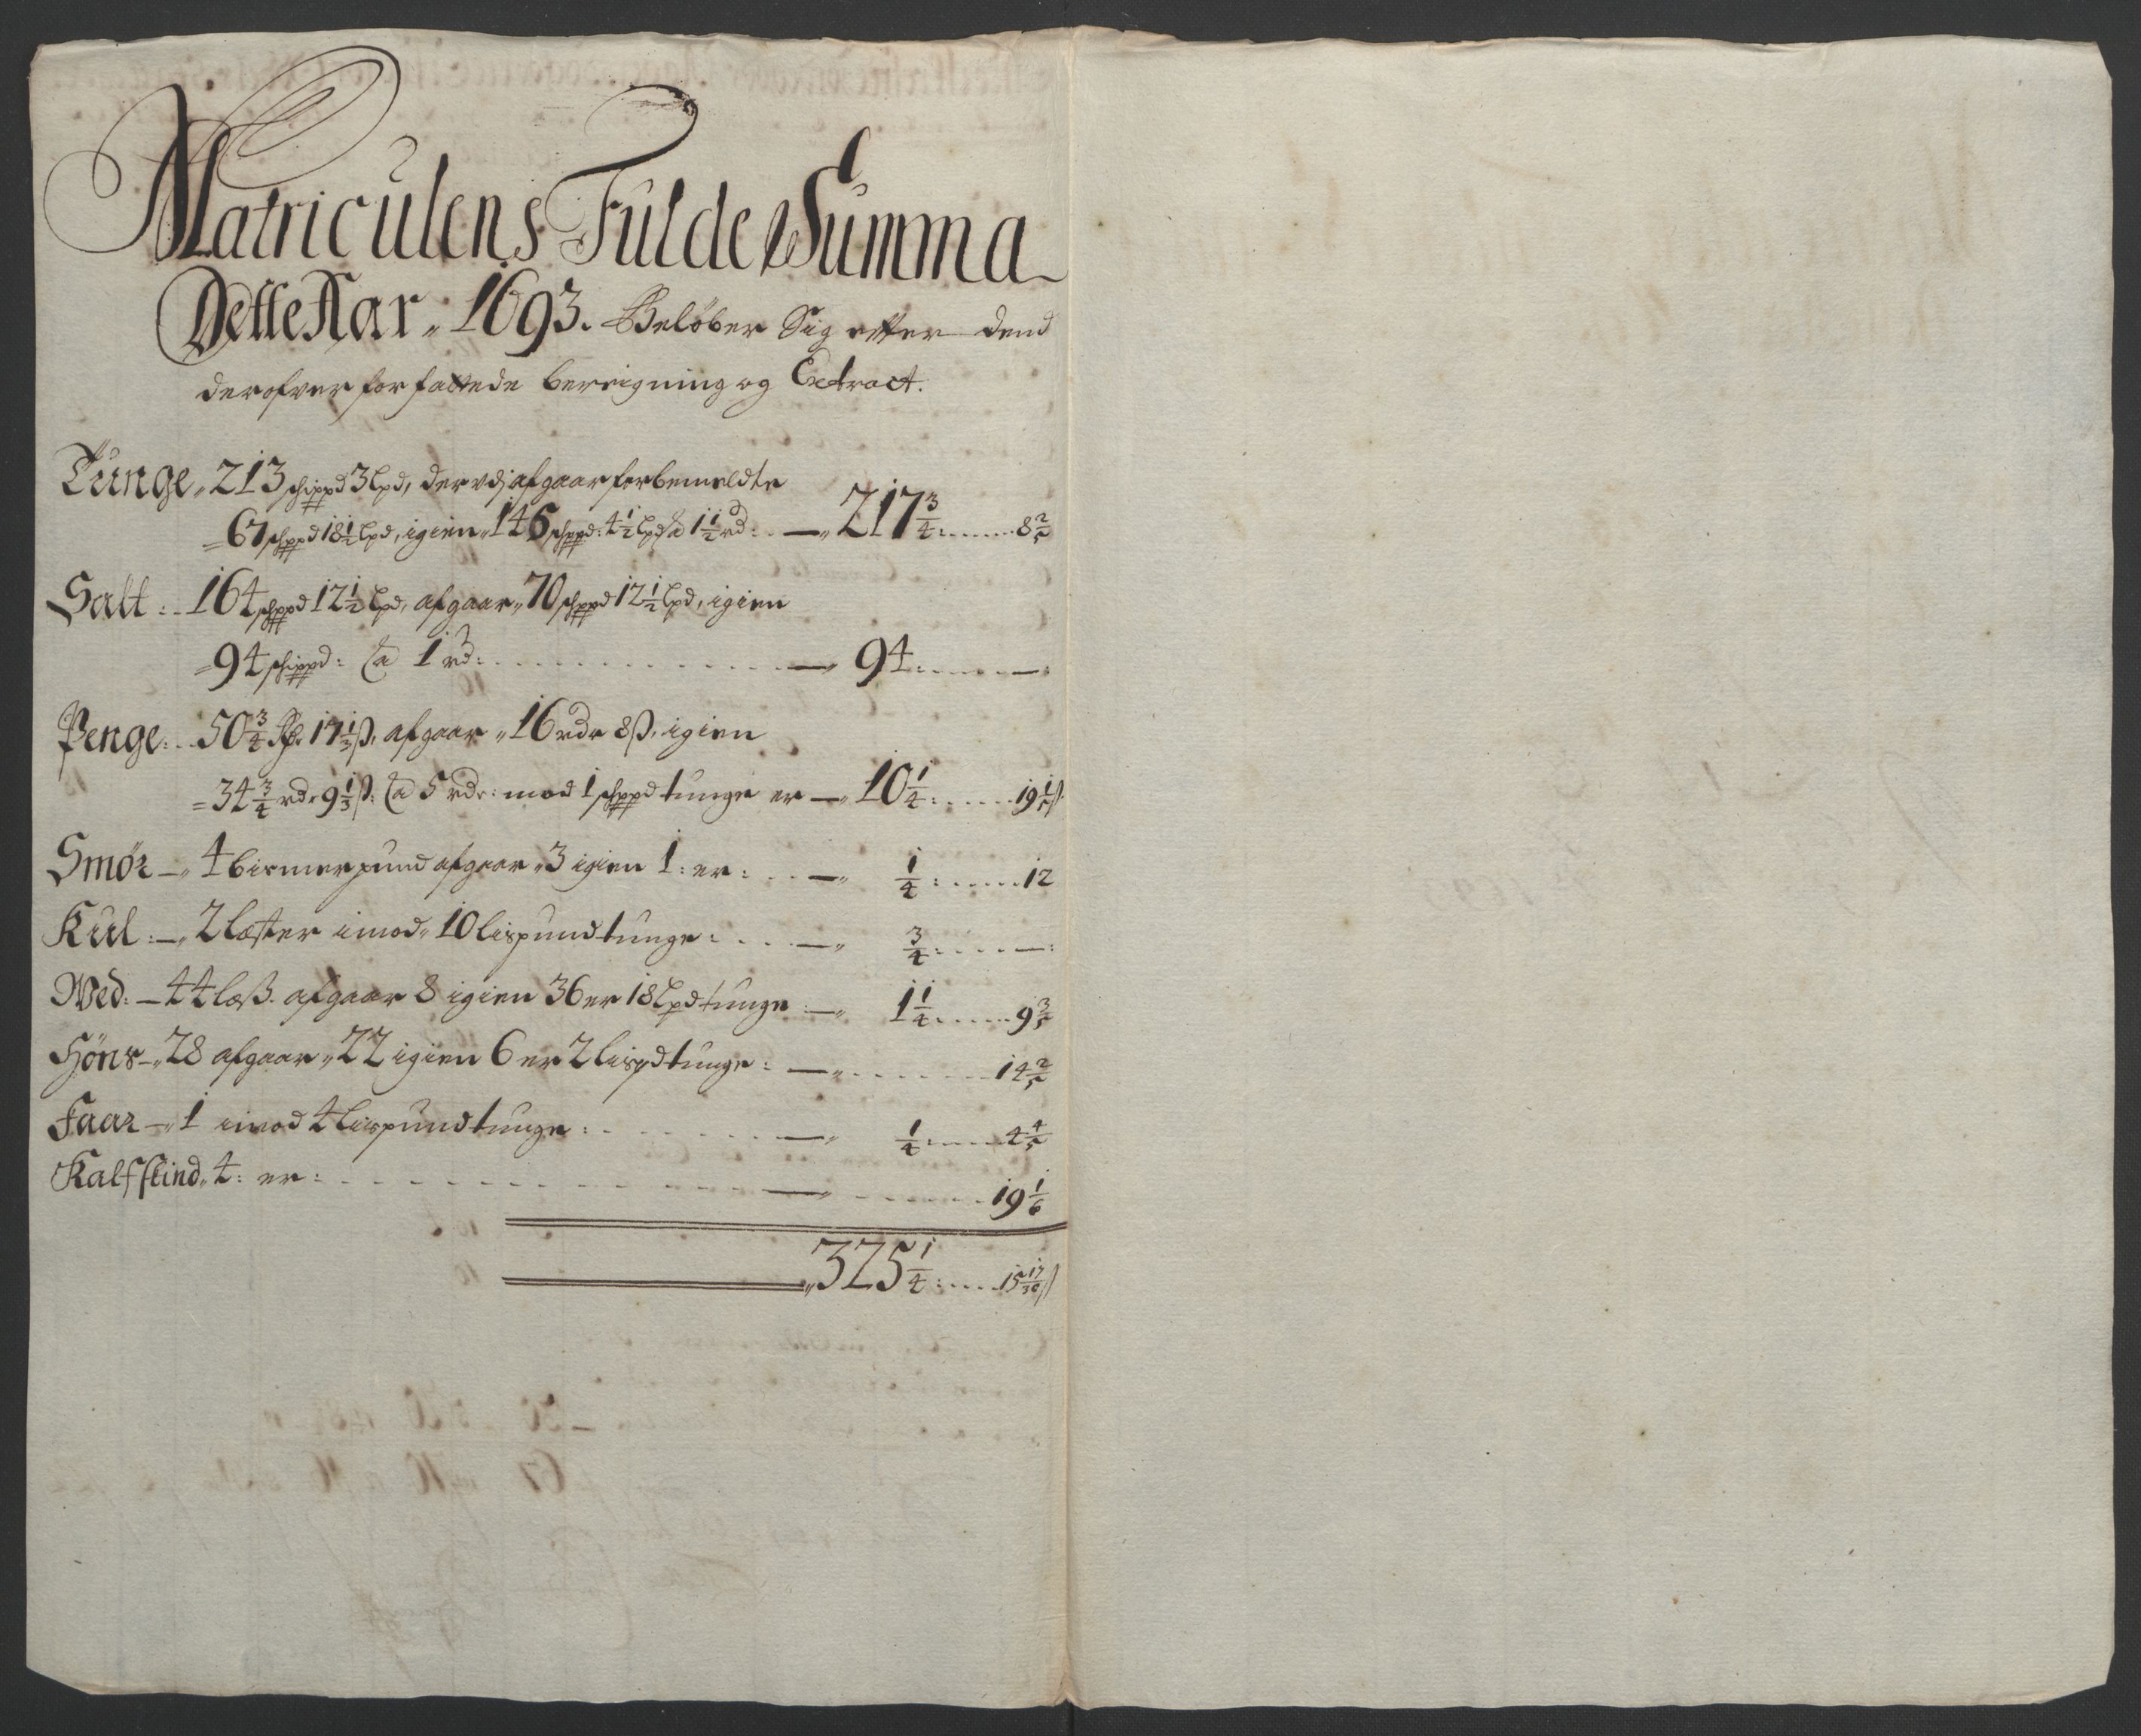 Matriculens Fulde Summa
Dette Aar „ 1693. Beløber Sig efter dend
derofver forfattede bereigning og Extract.
Tunge „ 213 schippd 3 lpd, der udj afgaar forbemeldte
= 67 schppd 18½ lpd, igien „ 146 schppd: 4½ lpd a 1½ rd: — „ 217¾: 8⅖
Salt: 164 schppd 12½ lpd, afgaar „ 70 schppd 12½ lpd, igien
= 94 schippd: a 1 rd: — „ 94: — :
Penge: 50¾ 17⅓ ß, afgaar „ 16 rdr 8 ß, igien
= 34¾ rdr 9⅓ ß: a 5 rdr: mod 1 schppd tunge er — „ 10¼: 19⅕ ß
Smør — „ 4 bismerpund afgaar „ 3 igien 1: er: — „ ¼: 12
Kul: — „ 2 læster imod „ 10 lispund tunge: — „ ¾: — :
Wed: — 44 læß. afgaar 8 igien 36 er 18 lpd tunge: — „ 1¼: 9⅗
Høns — „ 28 afgaar „ 22 igien 6 er 2 lispd tunge: — „ 14⅖
Faar — „ 1 imod 4 lispund tunge: — „ ¼: 4⅘
Kalfskind „ 4: er: — „ 19⅙
„ 325¼: 15 17/30 ß